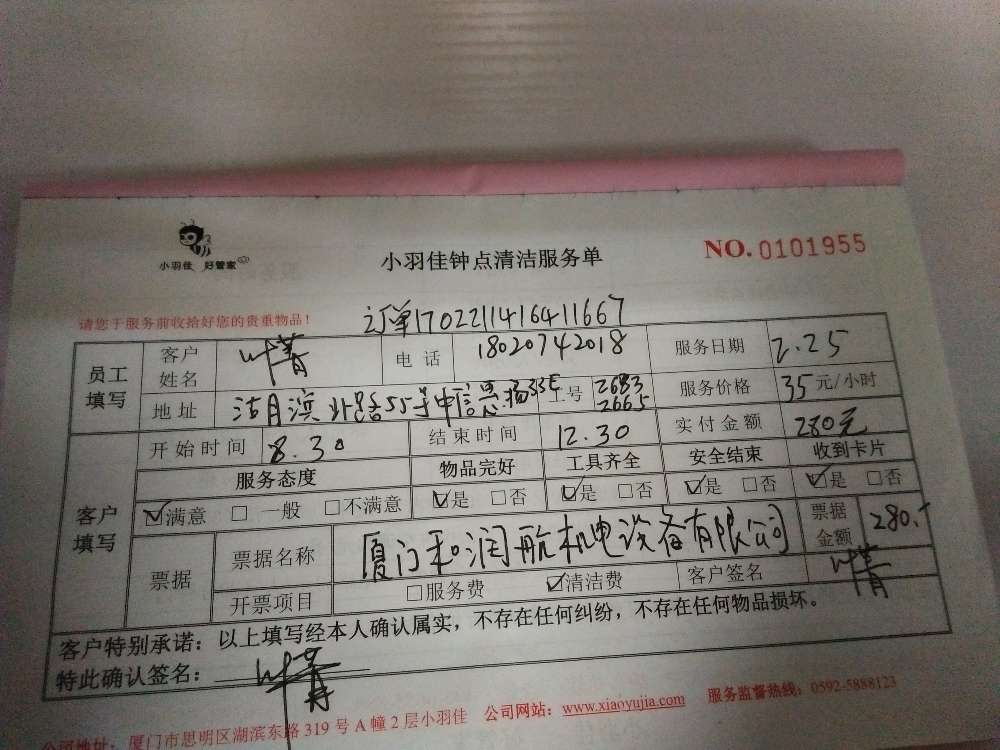 小羽佳 好管家
小羽佳钟点清洁服务单
NO.0101955
请您于服务前收拾好您的贵重物品！
订单170221141641 1667
员工填写 客户姓名 叶菁 电话 18020742018 服务日期 2.25
地址 湖滨北路55号中信惠扬33E 工号 2683 2665 服务价格 35元/小时
开始时间 8.30 结束时间 12.30 实付金额 280元
客户填写 服务态度 物品完好 工具齐全 安全结束 收到卡片
☑满意 □一般 □不满意 ☑是 □否 ☑是 □否 ☑是 □否 ☑是 □否
票据 票据名称 厦门和润航机电设备有限公司 票据金额 280.-
开票项目 □服务费 ☑清洁费 客户签名 叶菁
客户特别承诺：以上填写经本人确认属实，不存在任何纠纷，不存在任何物品损坏。
特此确认签名：叶菁
公司地址：厦门市思明区湖滨东路319号A幢2层小羽佳 公司网站：www.xiaoyujia.com 服务监督热线：0592-5888123